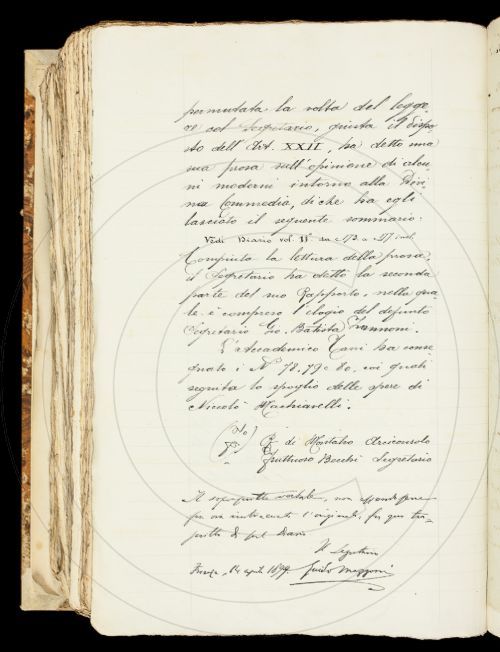 permutata la volta del legge-
re col Segretario, giusta il dispo
sto dell'Art. XXII, ha detto una
sua prosa sull'opinione di alcu-
ni moderni intorno alla Divi-
na Commedia, di che ha egli
lasciato il seguente sommario:
Vedi Diario vol. II da c. 173 a 177
Compiuta la lettura della prosa,
il Segretario ha detto la seconda
parte del suo Rapporto, nella qua-
le è compreso l'elogio del defunto
Segretario Gio. Batista Zannoni.
L'Accademico Tani ha conse
gnato i Ni 78. 79 e 80, coi quali
seguita lo spoglio delle opere di
Niccolò Machiavelli.
di Montalvo Arciconsolo
Fruttuoso Becchi Segretario
Il sopra verbale, non essendo
l'originale, fu qui tra-
scritto dal Diario
Il Segretario
Firenze, 14 aprile 1899 Guido Mazzoni